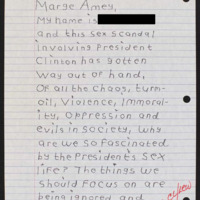 Marge Amey,
My name is
and this sex scandal
involving President
Clinton has gotten
way out of hand,
Of all the chaos, turm-
oil, Violence, Immoral-
ity, Oppression and
evils in society, why
are we so fascinated
by the President's sex
life? The things we
should focus on are
being ignored and